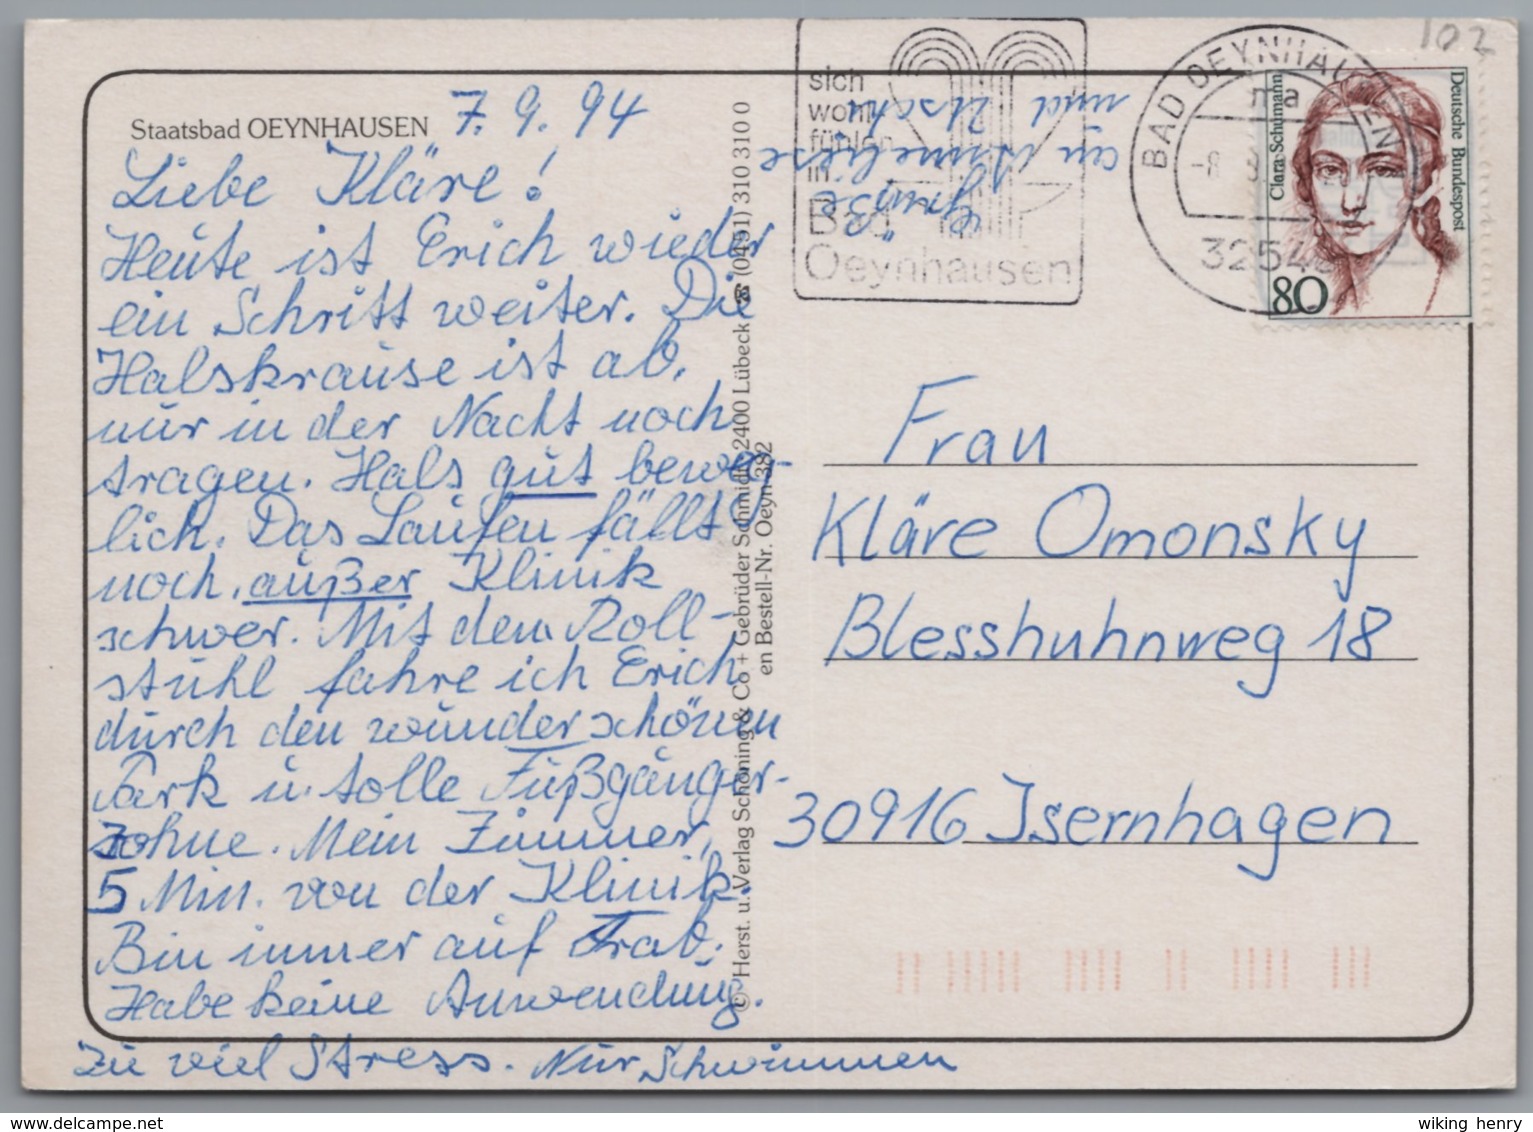 Staatsbad OEYNHAUSEN
7.9.94
Liebe Kläre!
Heute ist Erich wieder
ein Schritt weiter. Die
Halskrause ist ab,
nur in der Nacht noch
tragen. Hals gut beweg-
lich. Das Laufen fällt
noch, außer Klinik
schwer. Mit dem Roll-
stuhl fahre ich Erich
durch den wunderschönen
Park u. tolle Fußgänger-
zohne. Mein Zimmer,
5 Min. von der Klinik.
Bin immer auf Trab.
Habe keine Anwendung.
Zu viel Stress. Nur Schwimmen
Grüße
an Anneliese
und Uschi
© Herst. u. Verlag Schöning & Co + Gebrüder Schmidt 2400 Lübeck ☎ (0451) 310 310 0
en Bestell-Nr. Oeyn 382
sich
wohl
fühlen
in
Bad
Oeynhausen
BAD OEYNHAUSEN
ma
-8.
3254
Clara Schumann
Deutsche Bundespost
80
102
Frau
Kläre Omonsky
Blesshuhnweg 18
30916 Isernhagen
wiking henry